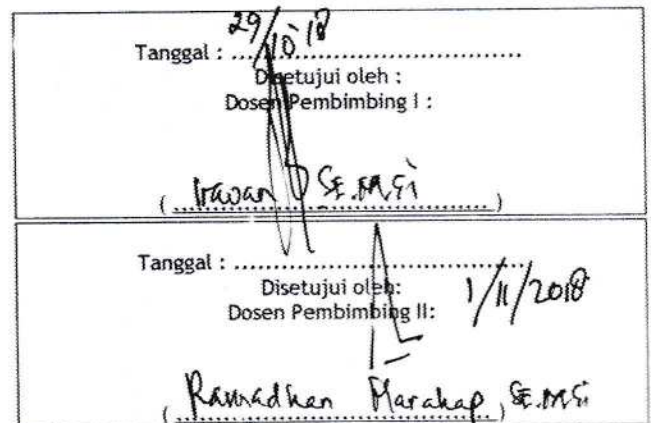 29/10 '18
Tanggal : ..........................................
Disetujui oleh :
Dosen Pembimbing I :
( Irawan SE.M.Si )
Tanggal : ..........................................
1/11/2018
Disetujui oleh:
Dosen Pembimbing II:
( Ramadhan Harahap, SE.M.Si